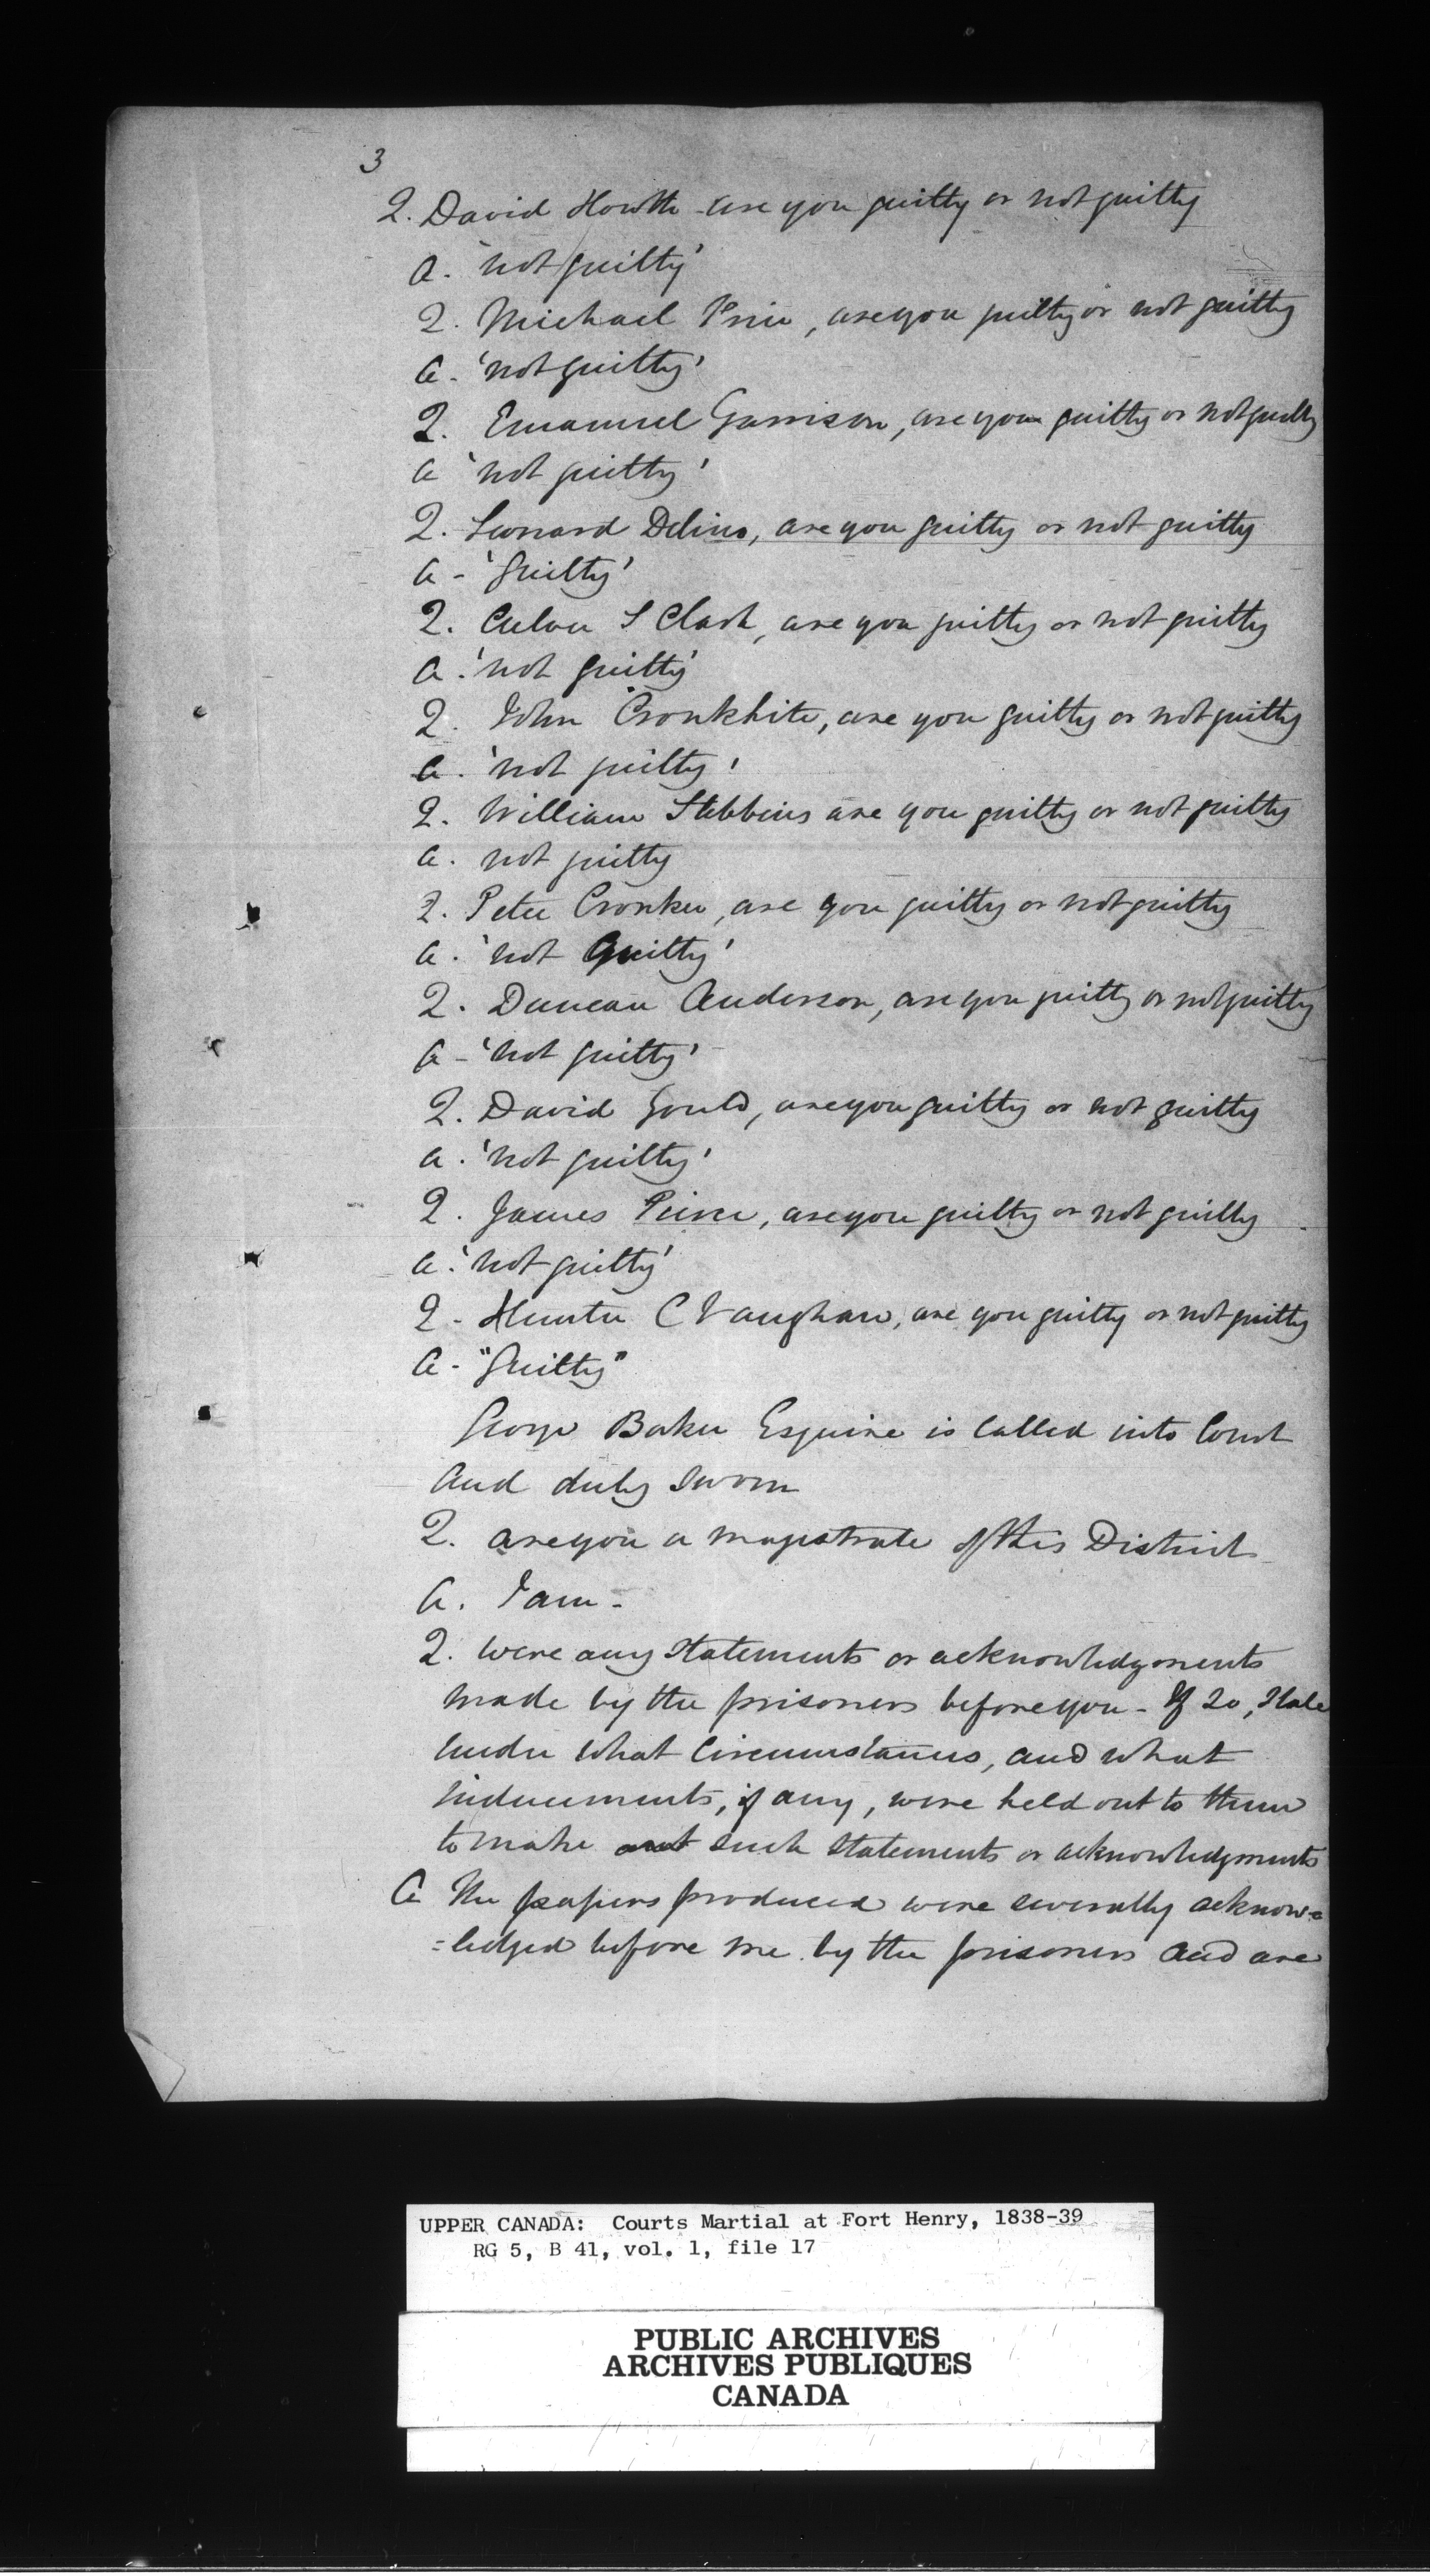 3
Q. David Howth - are you guilty or not guilty
A. 'not guilty'
Q. Michael Price, are you guilty or not guilty
A. 'not guilty'
Q. Emanuel Garrison, are you guilty or not guilty
A 'not guilty'
Q. Leonard Delino, are you guilty or not guilty
A - 'Guilty'
Q. Culver S Clark, are you guilty or not guilty
A. 'not guilty'
Q. John Cronkhite, are you guilty or not guilty
A. 'not guilty'
Q. William Stebbins are you guilty or not guilty
A. not guilty
Q. Peter Cronker, are you guilty or not guilty
A. 'not Guilty'
Q. Duncan Anderson, are you guilty or not guilty
A - 'not guilty'
Q. David Gould, are you guilty or not guilty
A. 'not guilty'
Q. James Peirce, are you guilty or not guilty
A. 'not guilty'
Q - Hunter C Vaughan, are you guilty or not guilty
A - "Guilty"
George Baker Esquire is called into Court
and duly sworn
Q. are you a magistrate of this District
A. I am -
Q. Were any statements or acknowledgments
made by the prisoners before you - If so, state
under what circumstances, and what
inducements, if any, were held out to them
to make such statements or acknowledgments
A The papers produced were severally acknow=
=ledged before me by the prisoners and are
UPPER CANADA: Courts Martial at Fort Henry, 1838-39
RG 5, B 41, vol. 1, file 17
PUBLIC ARCHIVES
ARCHIVES PUBLIQUES
CANADA